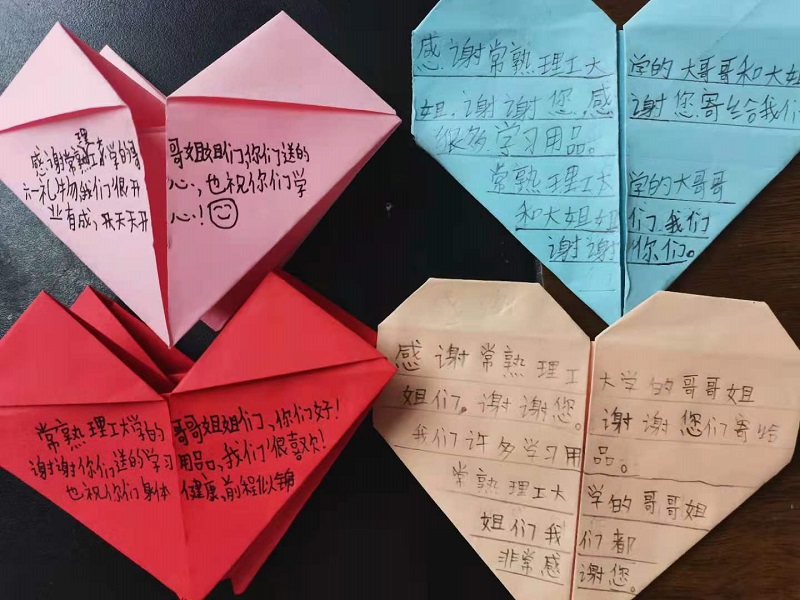 感谢常熟理工大学的哥哥姐姐们你们送的
六一礼物我们很开心,也祝你们学
业有成,天天开心!
感谢常熟理工大学的大哥哥和大姐
姐,谢谢您,感谢您寄给我们
很多学习用品。
常熟理工大学的大哥哥
和大姐姐们我们
谢谢你们。
常熟理工大学的哥哥姐姐们、你们好!
谢谢你们送的学习用品,我们很喜欢!
也祝你们身体健康、前程似锦
感谢常熟理工大学的哥哥姐
姐们。谢谢您。谢谢您们寄给
我们许多学习用品。
常熟理工大学的哥哥姐
姐们我们都
非常感谢您。